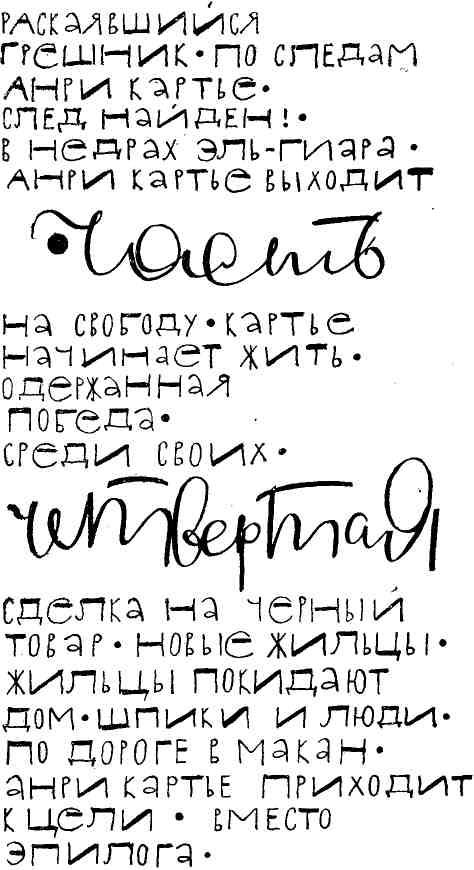 РАСКАЯВШИЙСЯ
ГРЕШНИК • ПО СЛЕДАМ
АНРИ КАРТЬЕ •
СЛЕД НАЙДЕН! •
В НЕДРАХ ЭЛЬ-ГИАРА •
АНРИ КАРТЬЕ ВЫХОДИТ
• Часть
НА СВОБОДУ • КАРТЬЕ
НАЧИНАЕТ ЖИТЬ •
ОДЕРЖАННАЯ
ПОБЕДА •
СРЕДИ СВОИХ •
четвертая
СДЕЛКА НА ЧЕРНЫЙ
ТОВАР • НОВЫЕ ЖИЛЬЦЫ •
ЖИЛЬЦЫ ПОКИДАЮТ
ДОМ • ШПИКИ И ЛЮДИ •
ПО ДОРОГЕ В МАКАН •
АНРИ КАРТЬЕ ПРИХОДИТ
К ЦЕЛИ • ВМЕСТО
ЭПИЛОГА •